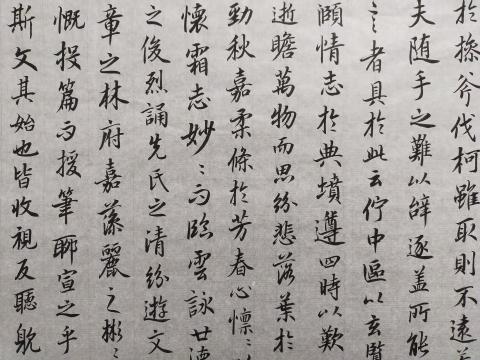 於操斧伐柯雖取則不遠若
夫随手之難以辞逐盖所能
言者具於此云佇中區以玄覽
頤情志於典墳遵四時以歎
逝瞻萬物而思紛悲落葉於
勁秋嘉柔條於芳春心懍〻以
懷霜志妙〻而臨雲詠世德
之俊烈誦先民之清紛遊文
章之林府嘉藻麗之彬〻
慨投篇而援筆聊宣之乎
斯文其始也皆收視反聽躭